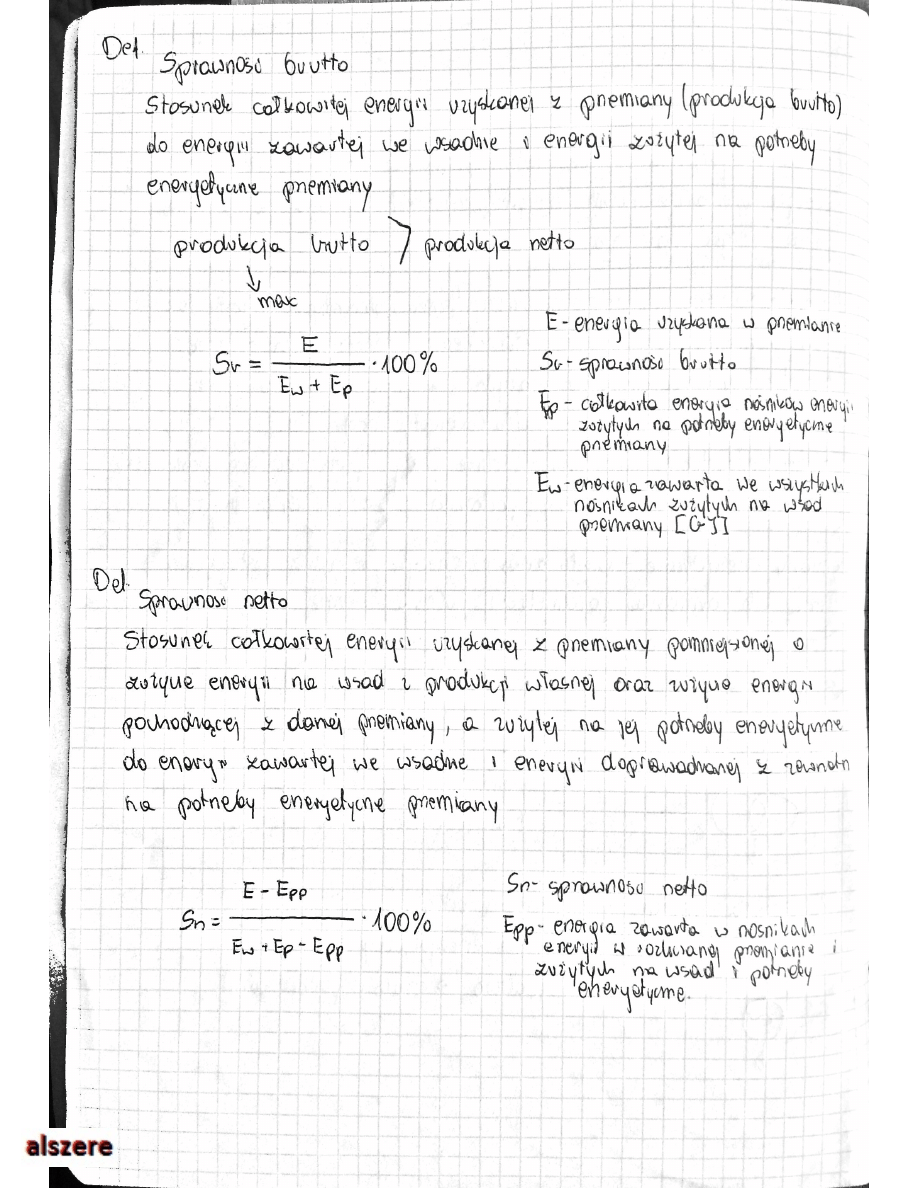 Def.
Sprawność brutto
Stosunek całkowitej energii uzyskanej z przemiany (produkcja brutto)
do energii zawartej we wsadzie i energii zużytej na potrzeby
energetyczne przemiany
produkcja brutto > produkcja netto
↓
max
Sb = E / (Ew + Ep) · 100%
E - energia uzyskana w przemianie
Sb - sprawność brutto
Ep - całkowita energia nośników energii
zużytych na potrzeby energetyczne
przemiany
Ew - energia zawarta we wszystkich
nośnikach zużytych na wsad
przemiany [GJ]
Def.
Sprawność netto
Stosunek całkowitej energii uzyskanej z przemiany pomniejszonej o
zużycie energii na wsad z produkcji własnej oraz zużycie energii
pochodzącej z danej przemiany, a zużytej na jej potrzeby energetyczne
do energii zawartej we wsadzie i energii doprowadzanej z zewnątrz
na potrzeby energetyczne przemiany
Sn = (E - Epp) / (Ew + Ep - Epp) · 100%
Sn - sprawność netto
Epp - energia zawarta w nośnikach
energii w rozważanej przemianie i
zużytych na wsad i potrzeby
energetyczne.
alszere